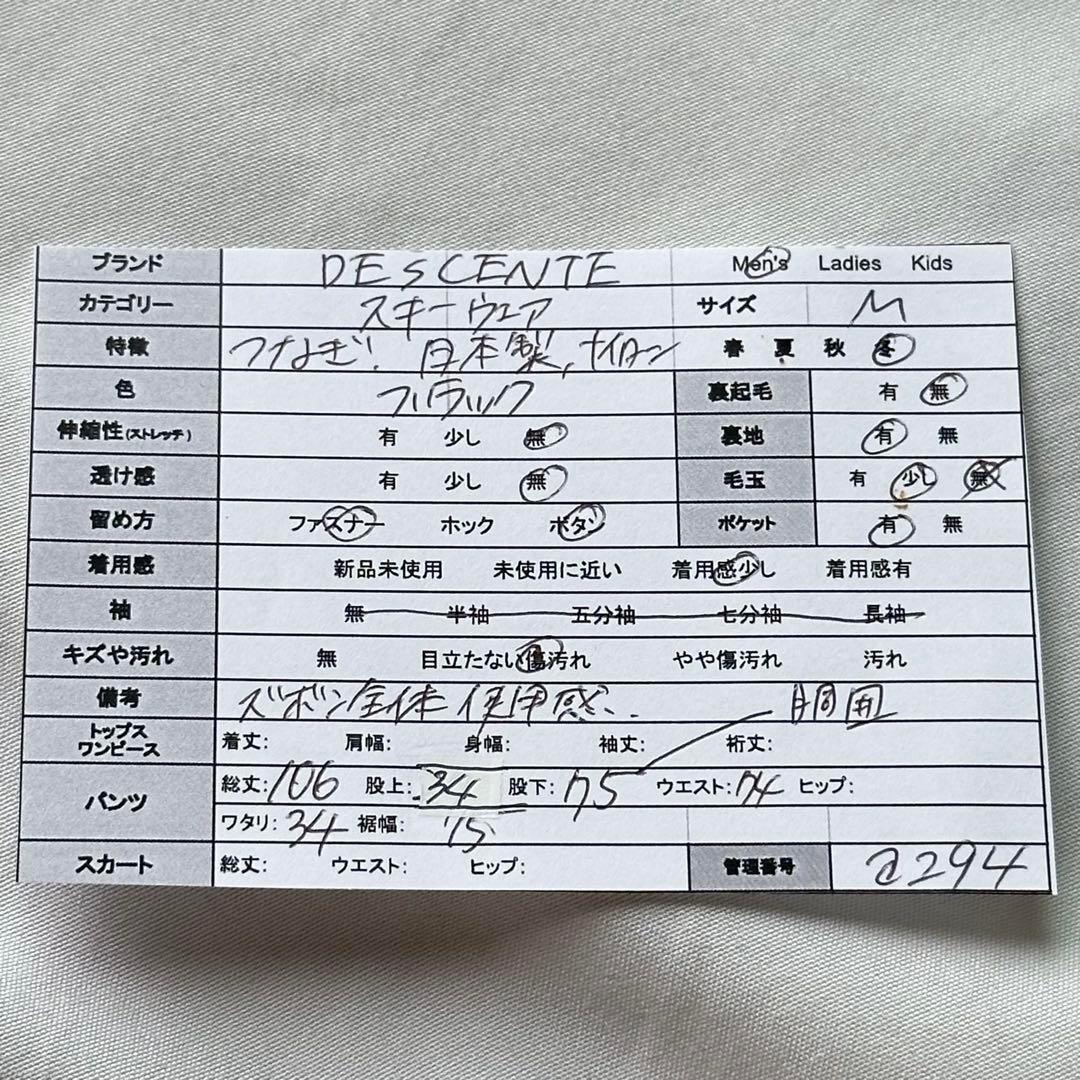 ブランド DESCENTE Men's Ladies Kids
カテゴリー スキーウェア サイズ M
特徴 つなぎ! 日本製, ナイロン 春 夏 秋 冬
色 ブラック 裏起毛 有 無
伸縮性(ストレッチ) 有 少し 無 裏地 有 無
透け感 有 少し 無 毛玉 有 少し 無
留め方 ファスナー ホック ボタン ポケット 有 無
着用感 新品未使用 未使用に近い 着用感少し 着用感有
袖 無 半袖 五分袖 七分袖 長袖
キズや汚れ 無 目立たない傷汚れ やや傷汚れ 汚れ
備考 ズボン全体 使用感.. 胴囲
トップス ワンピース 着丈: 肩幅: 身幅: 袖丈: 裄丈:
パンツ 総丈: 106 股上: 34 股下: 75 ウエスト: 74 ヒップ:
ワタリ: 34 裾幅: 15
スカート 総丈: ウエスト: ヒップ: 管理番号 a294